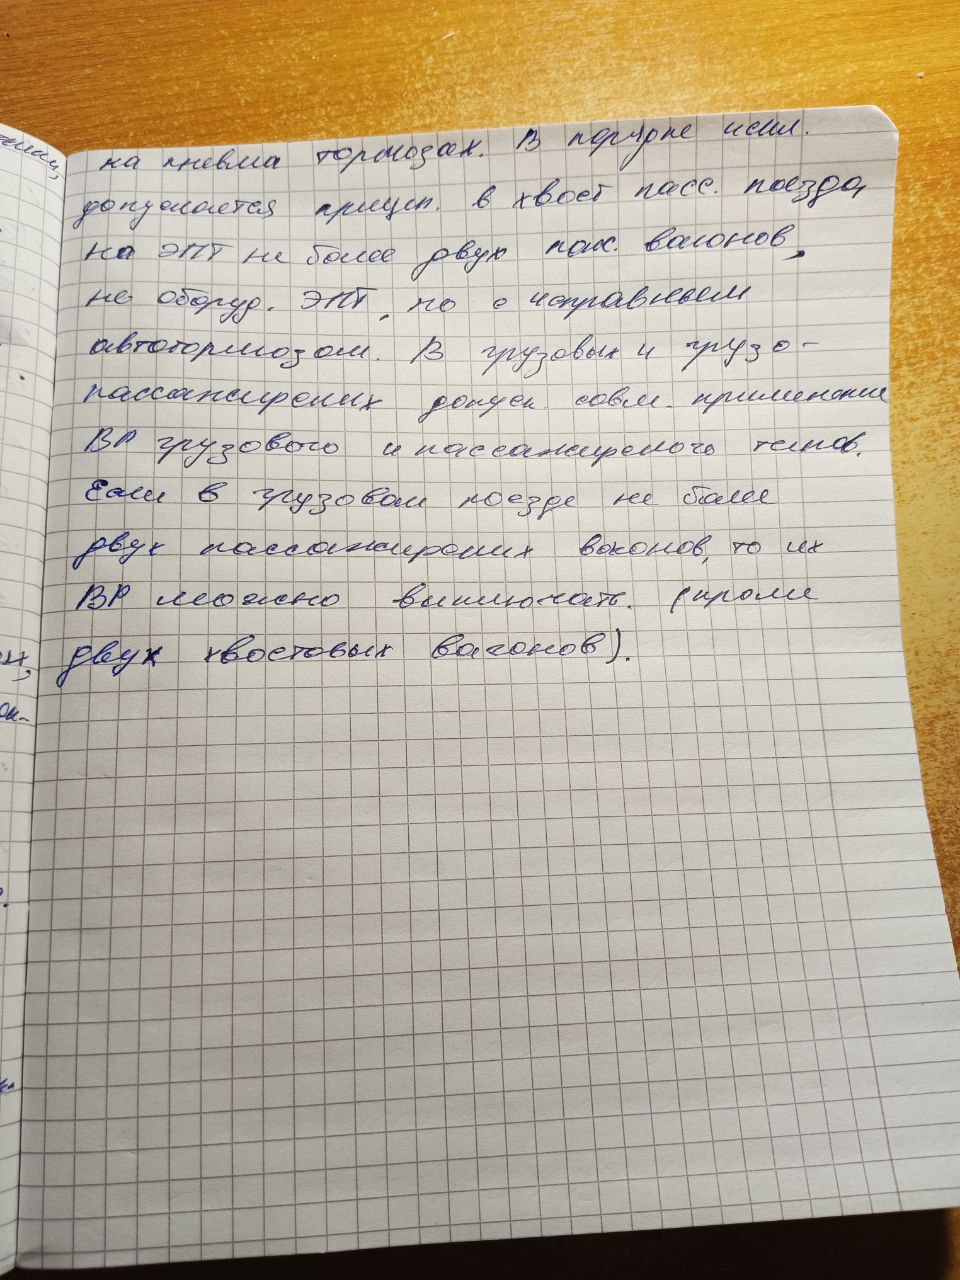 на пневма тормозах. В порядке искл.
допускается прицеп. в хвост пасс. поезда,
на ЭПТ не более двух пас. вагонов,
не оборуд. ЭПТ, но с исправным
автотормозом. В грузовых и грузо-
пассажирских допуск. совм. применение
ВР грузового и пассажирского типов.
Если в грузовом поезде не более
двух пассажирских вагонов, то их
ВР можно выключать. (кроме
двух хвостовых вагонов).